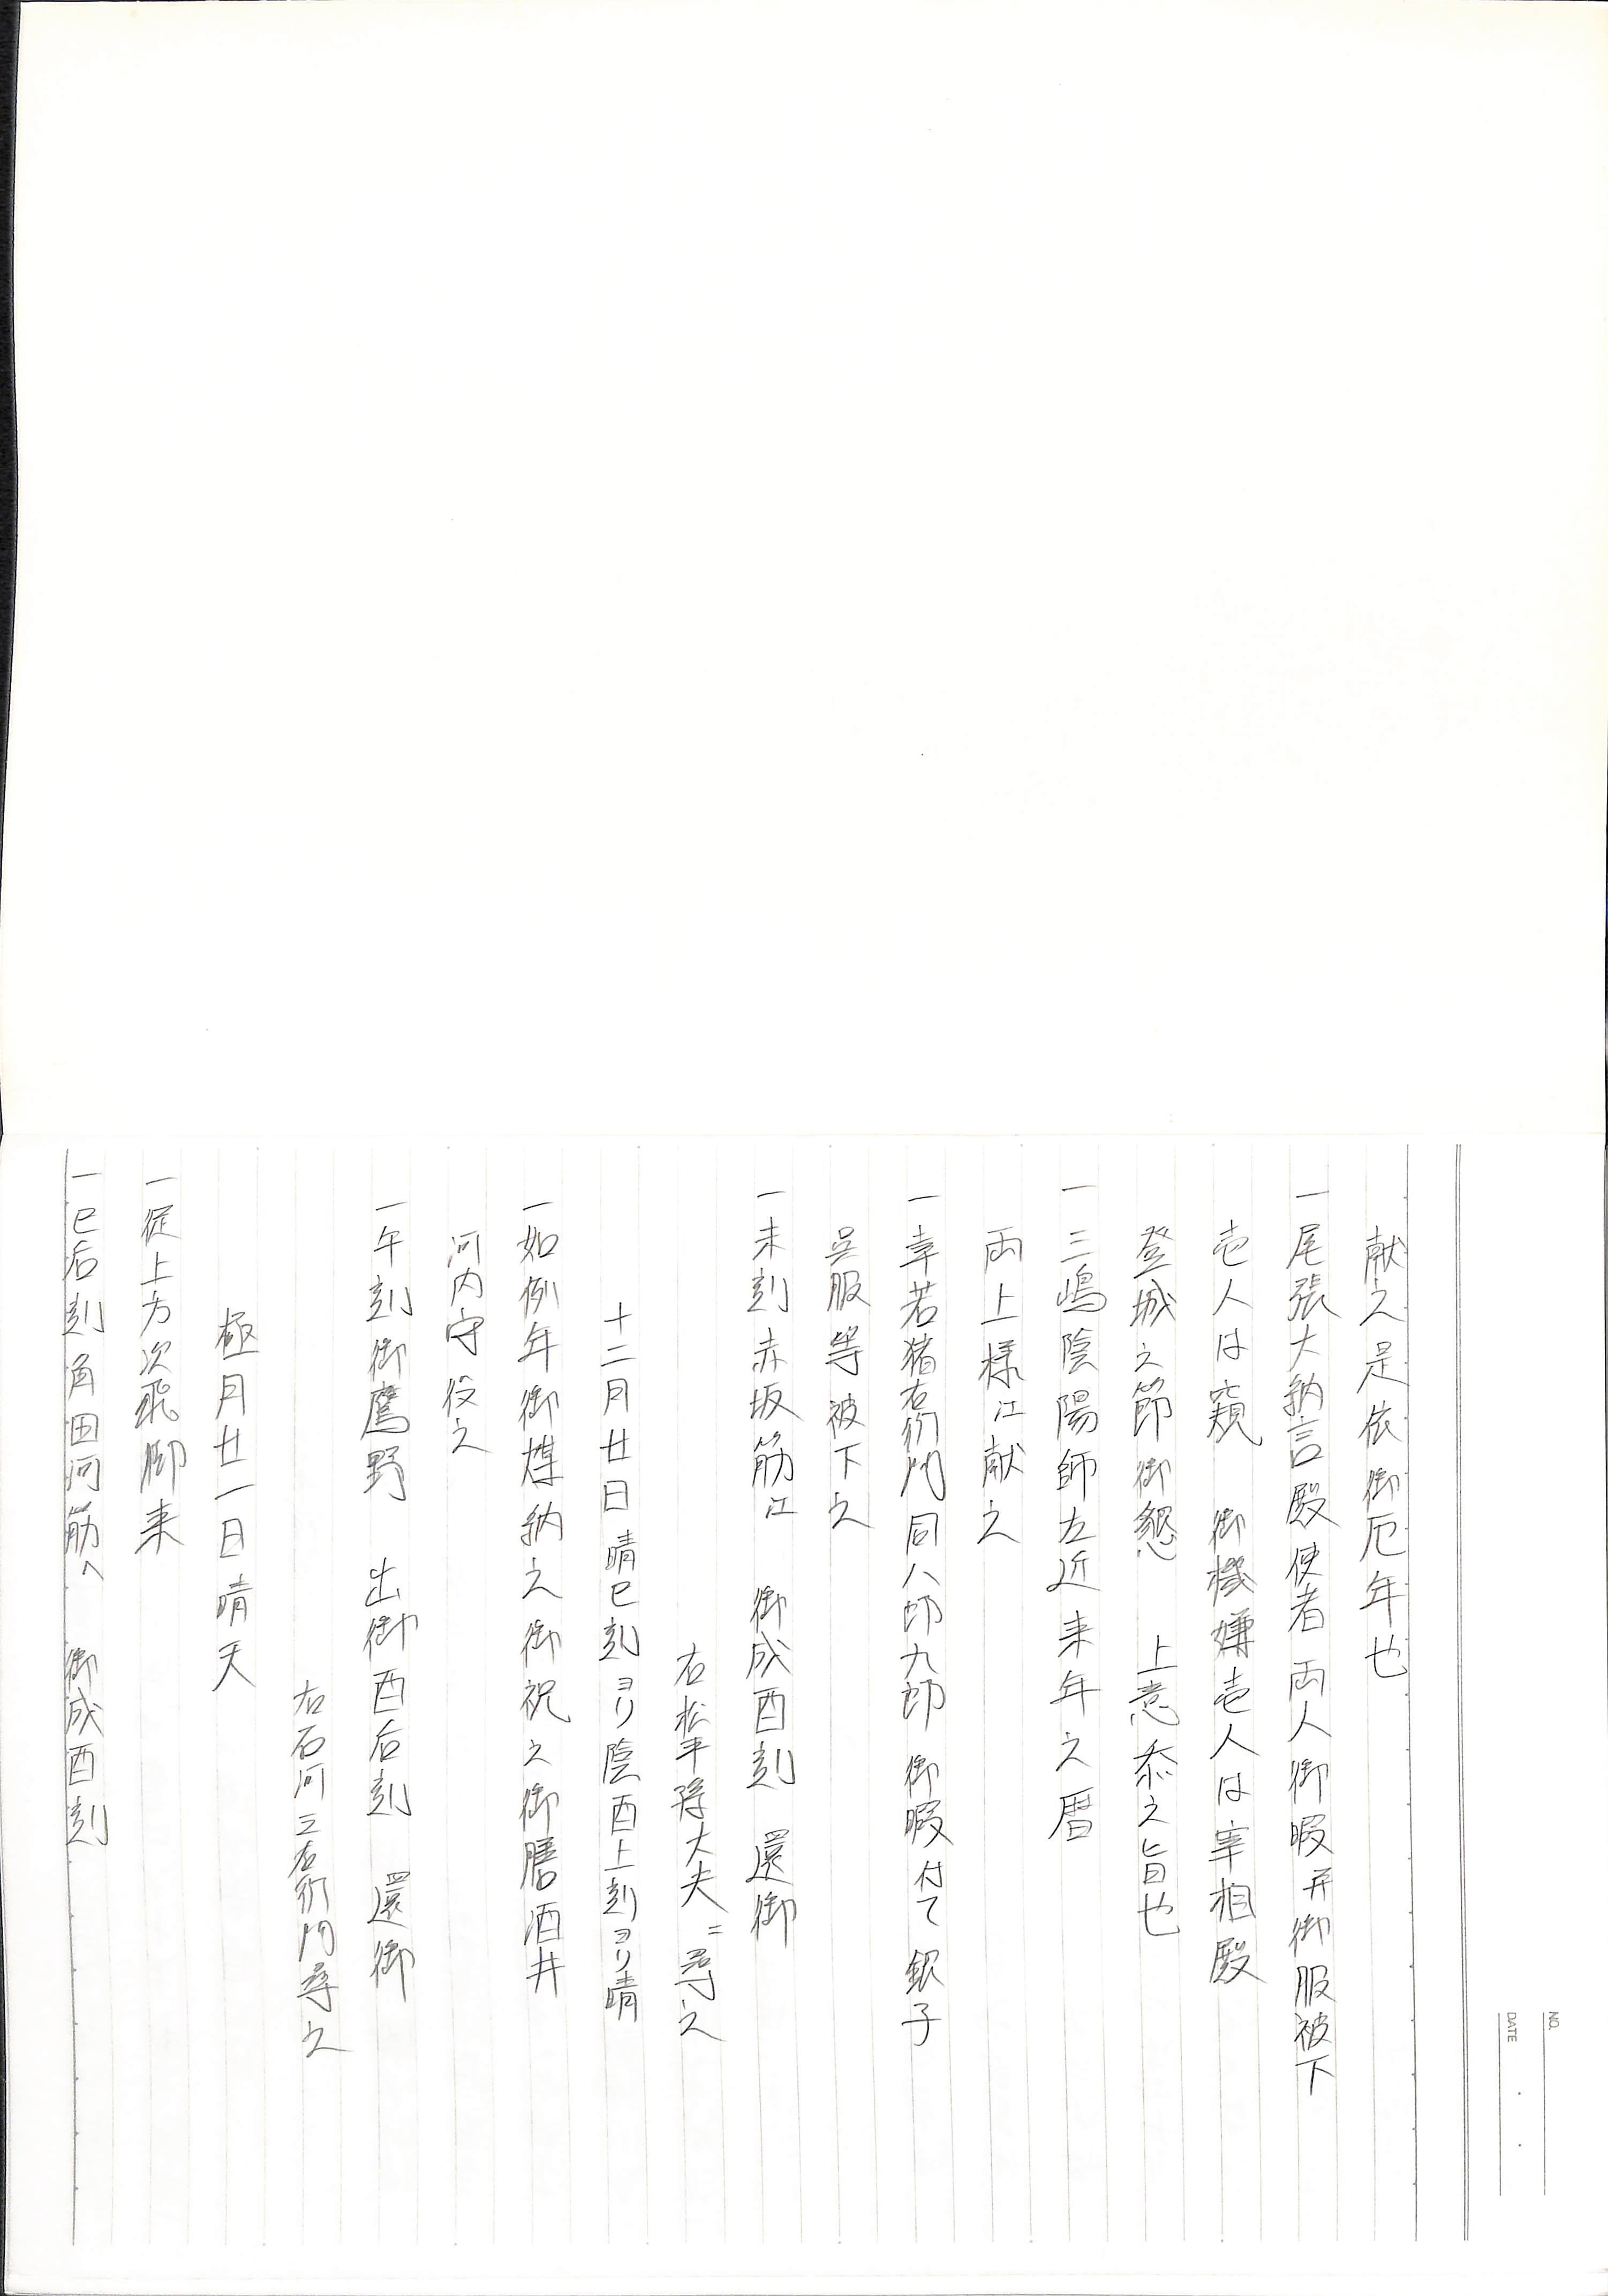 献之是依御厄年也
一尾張大納言殿使者両人御暇并御服被下
壱人は窺　御機嫌壱人は宰相殿
登城之節御懇　上意忝之旨也
一三嶋陰陽師左近来年之暦
両上様江献之
一幸若猪右衛門同八郎九郎御暇付て銀子
呉服等被下之
一未刻赤坂筋江　御成酉刻　還御
右松平隼大夫ニ尋之
十二月廿日晴巳刻ヨリ陰酉上刻ヨリ晴
一如例年御煤納之御祝之御膳酒井
河内守役之
一午刻御鷹野　出御酉后刻　還御
右石河三右衛門尋之
極月廿一日晴天
一従上方次飛脚来
一巳后刻角田河筋へ　御成酉刻
NO.
DATE